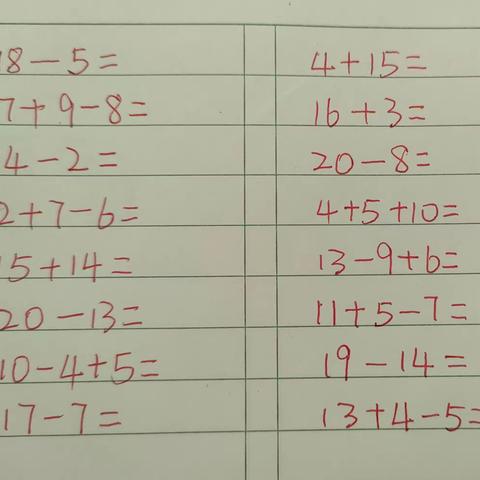 18-5=
7+9-8=
4-2=
2+7-6=
15+14=
20-13=
10-4+5=
17-7=
4+15=
16+3=
20-8=
4+5+10=
13-9+6=
11+5-7=
19-14=
13+4-5=